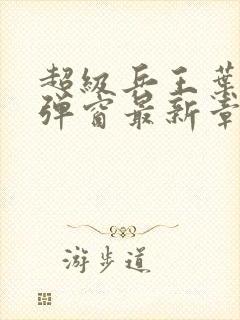 超级兵王叶
弹窗最新章
游步道